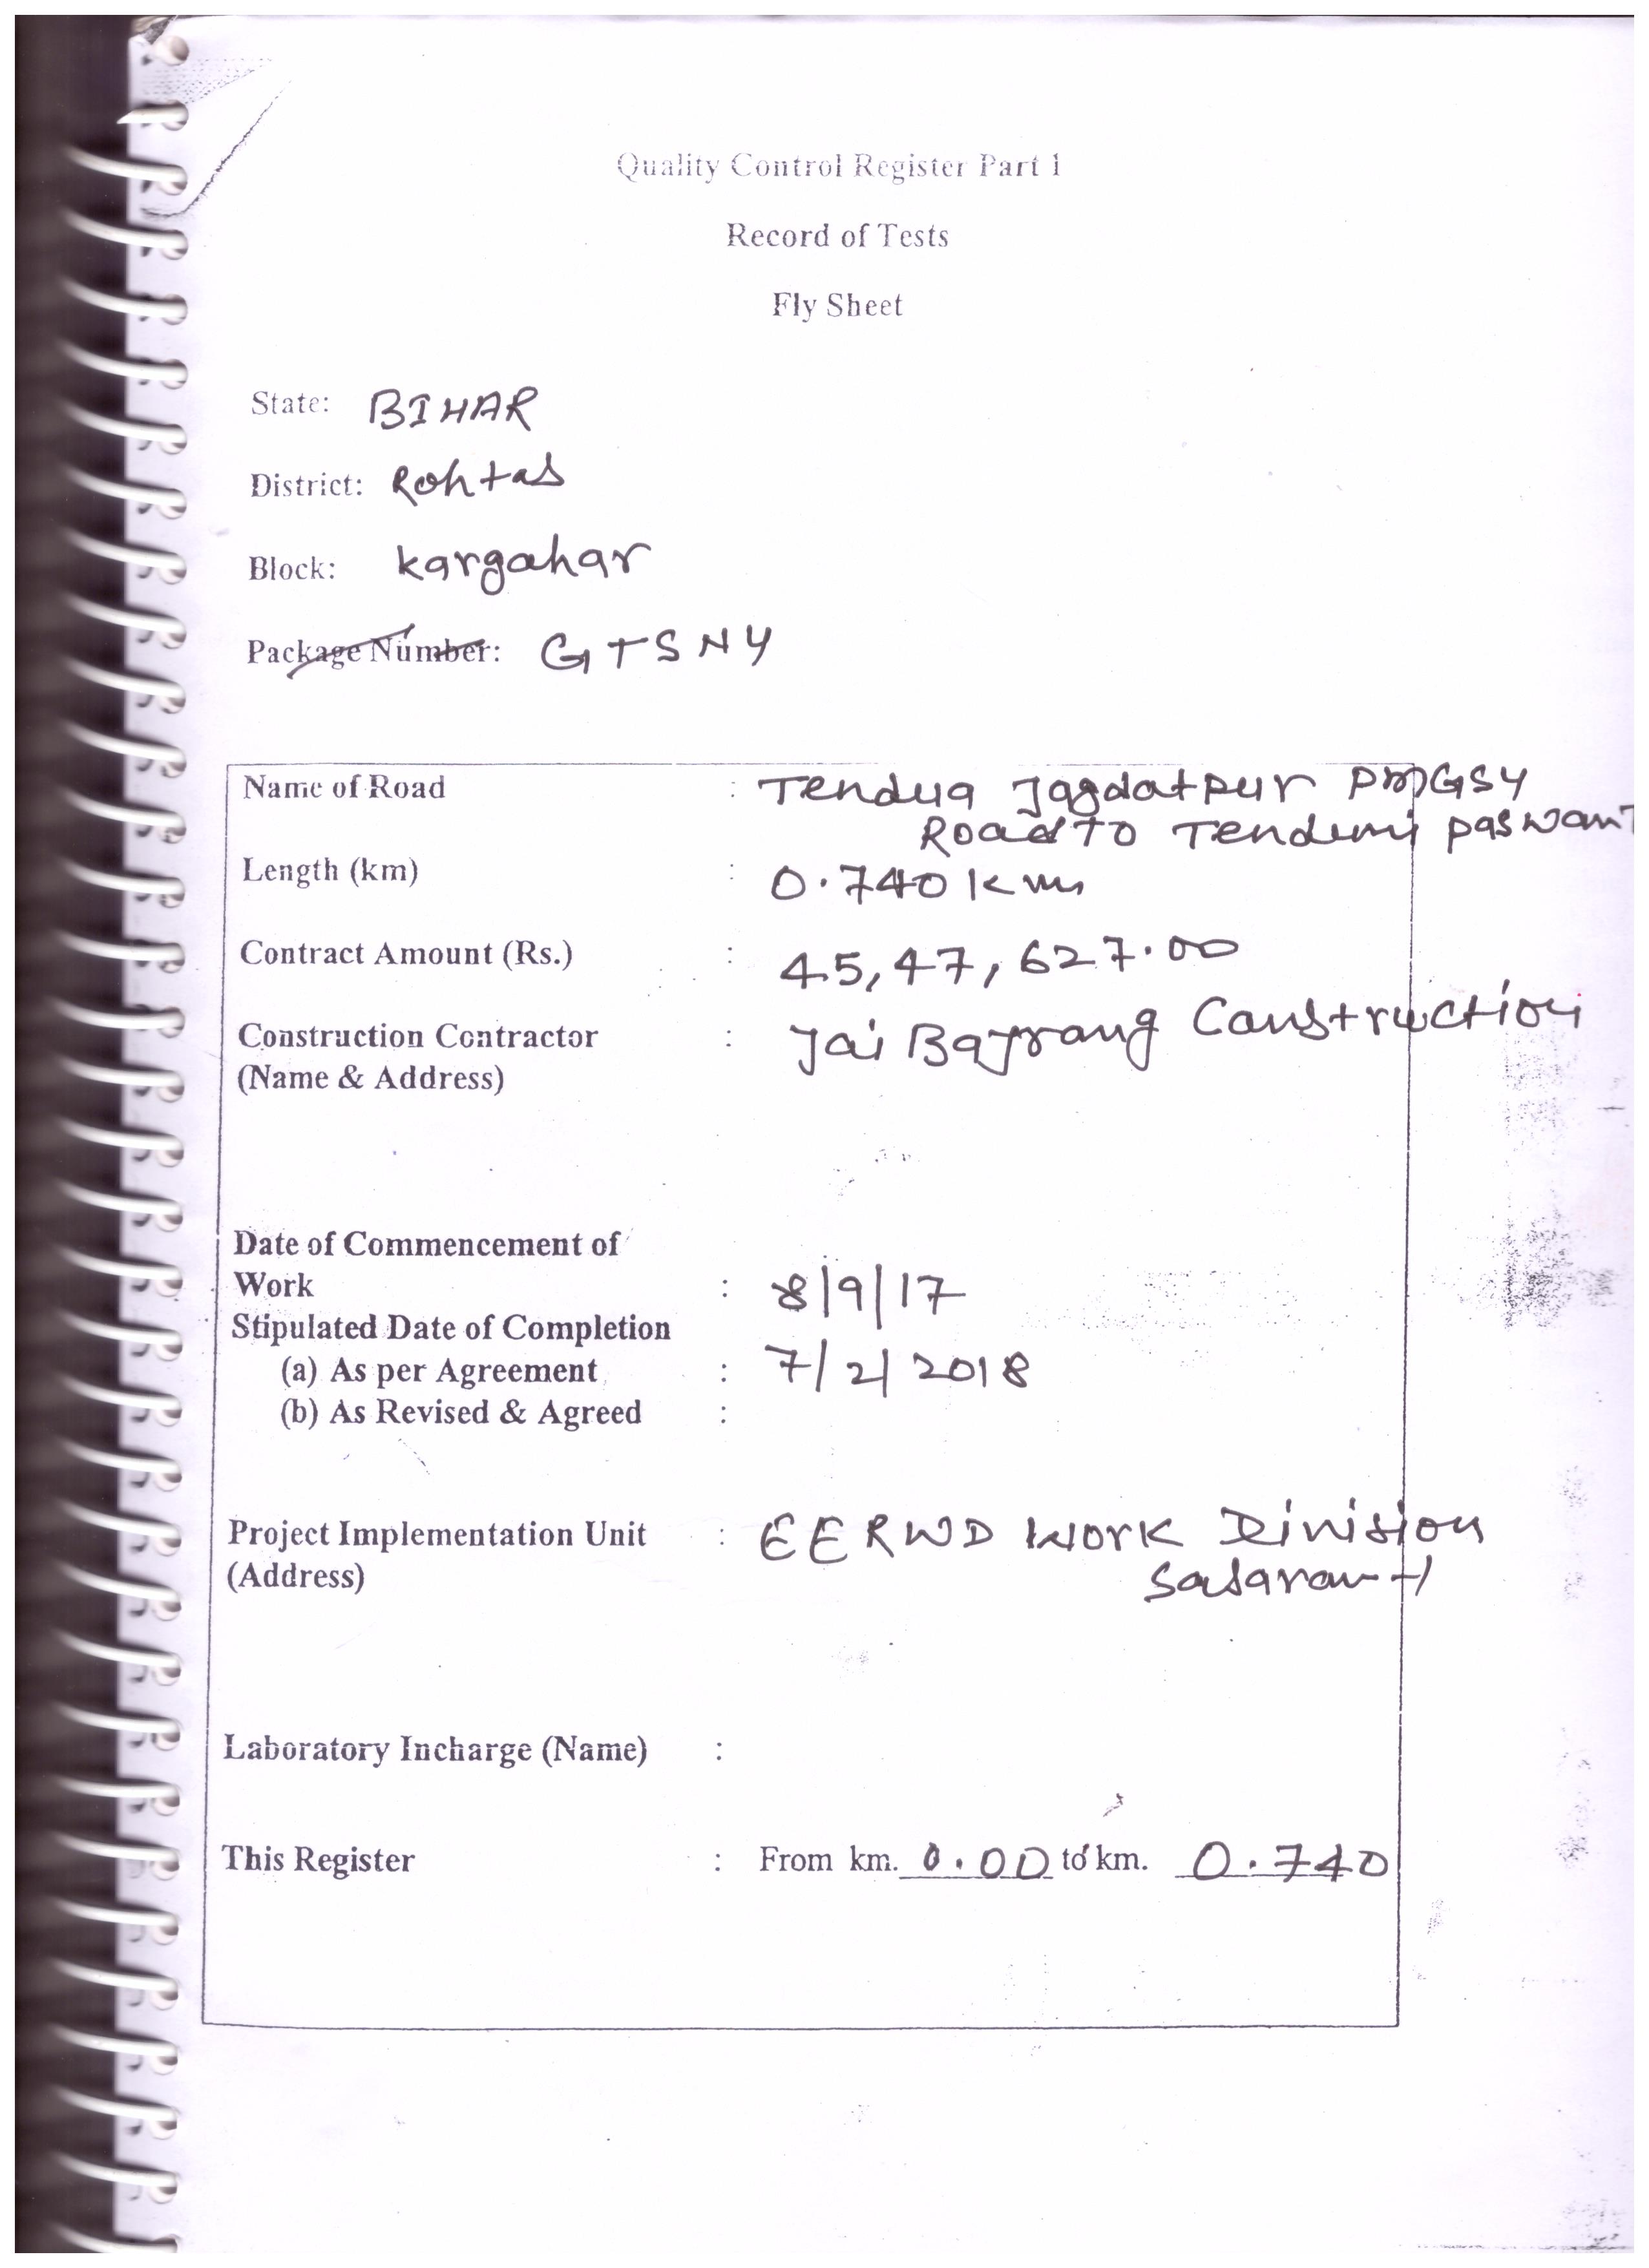 Quality Control Register Part 1
Record of Tests
Fly Sheet
State: BIHAR
District: Rohtas
Block: Kargahar
Package Number: GTSNY
Name of Road : Tendua Jagdatpur PMGSY
Road to Tenduni Paswan
Length (km) : 0.740 Km
Contract Amount (Rs.) : 45,47,627.00
Construction Contractor : Jai Bajrang Construction
(Name & Address)
Date of Commencement of
Work : 8/9/17
Stipulated Date of Completion
(a) As per Agreement : 7/2/2018
(b) As Revised & Agreed :
Project Implementation Unit : EERWD Work Division
(Address) Sasaram-1
Laboratory Incharge (Name) :
This Register : From km. 0.00 to km. 0.740